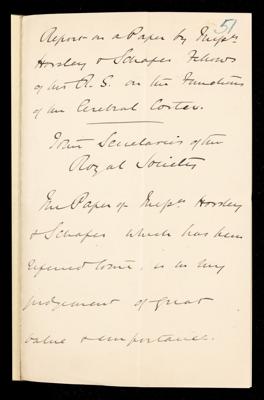 51
Report on a Paper by Messrs
Horsley & Schafer Fellows
of the R. S. on the Functions
of the Cerebral Cortex.
Secretaries of the
Royal Society
The Paper of Messrs Horsley
& Schafer which has been
referred to me, is in my
judgement of great
value & importance.